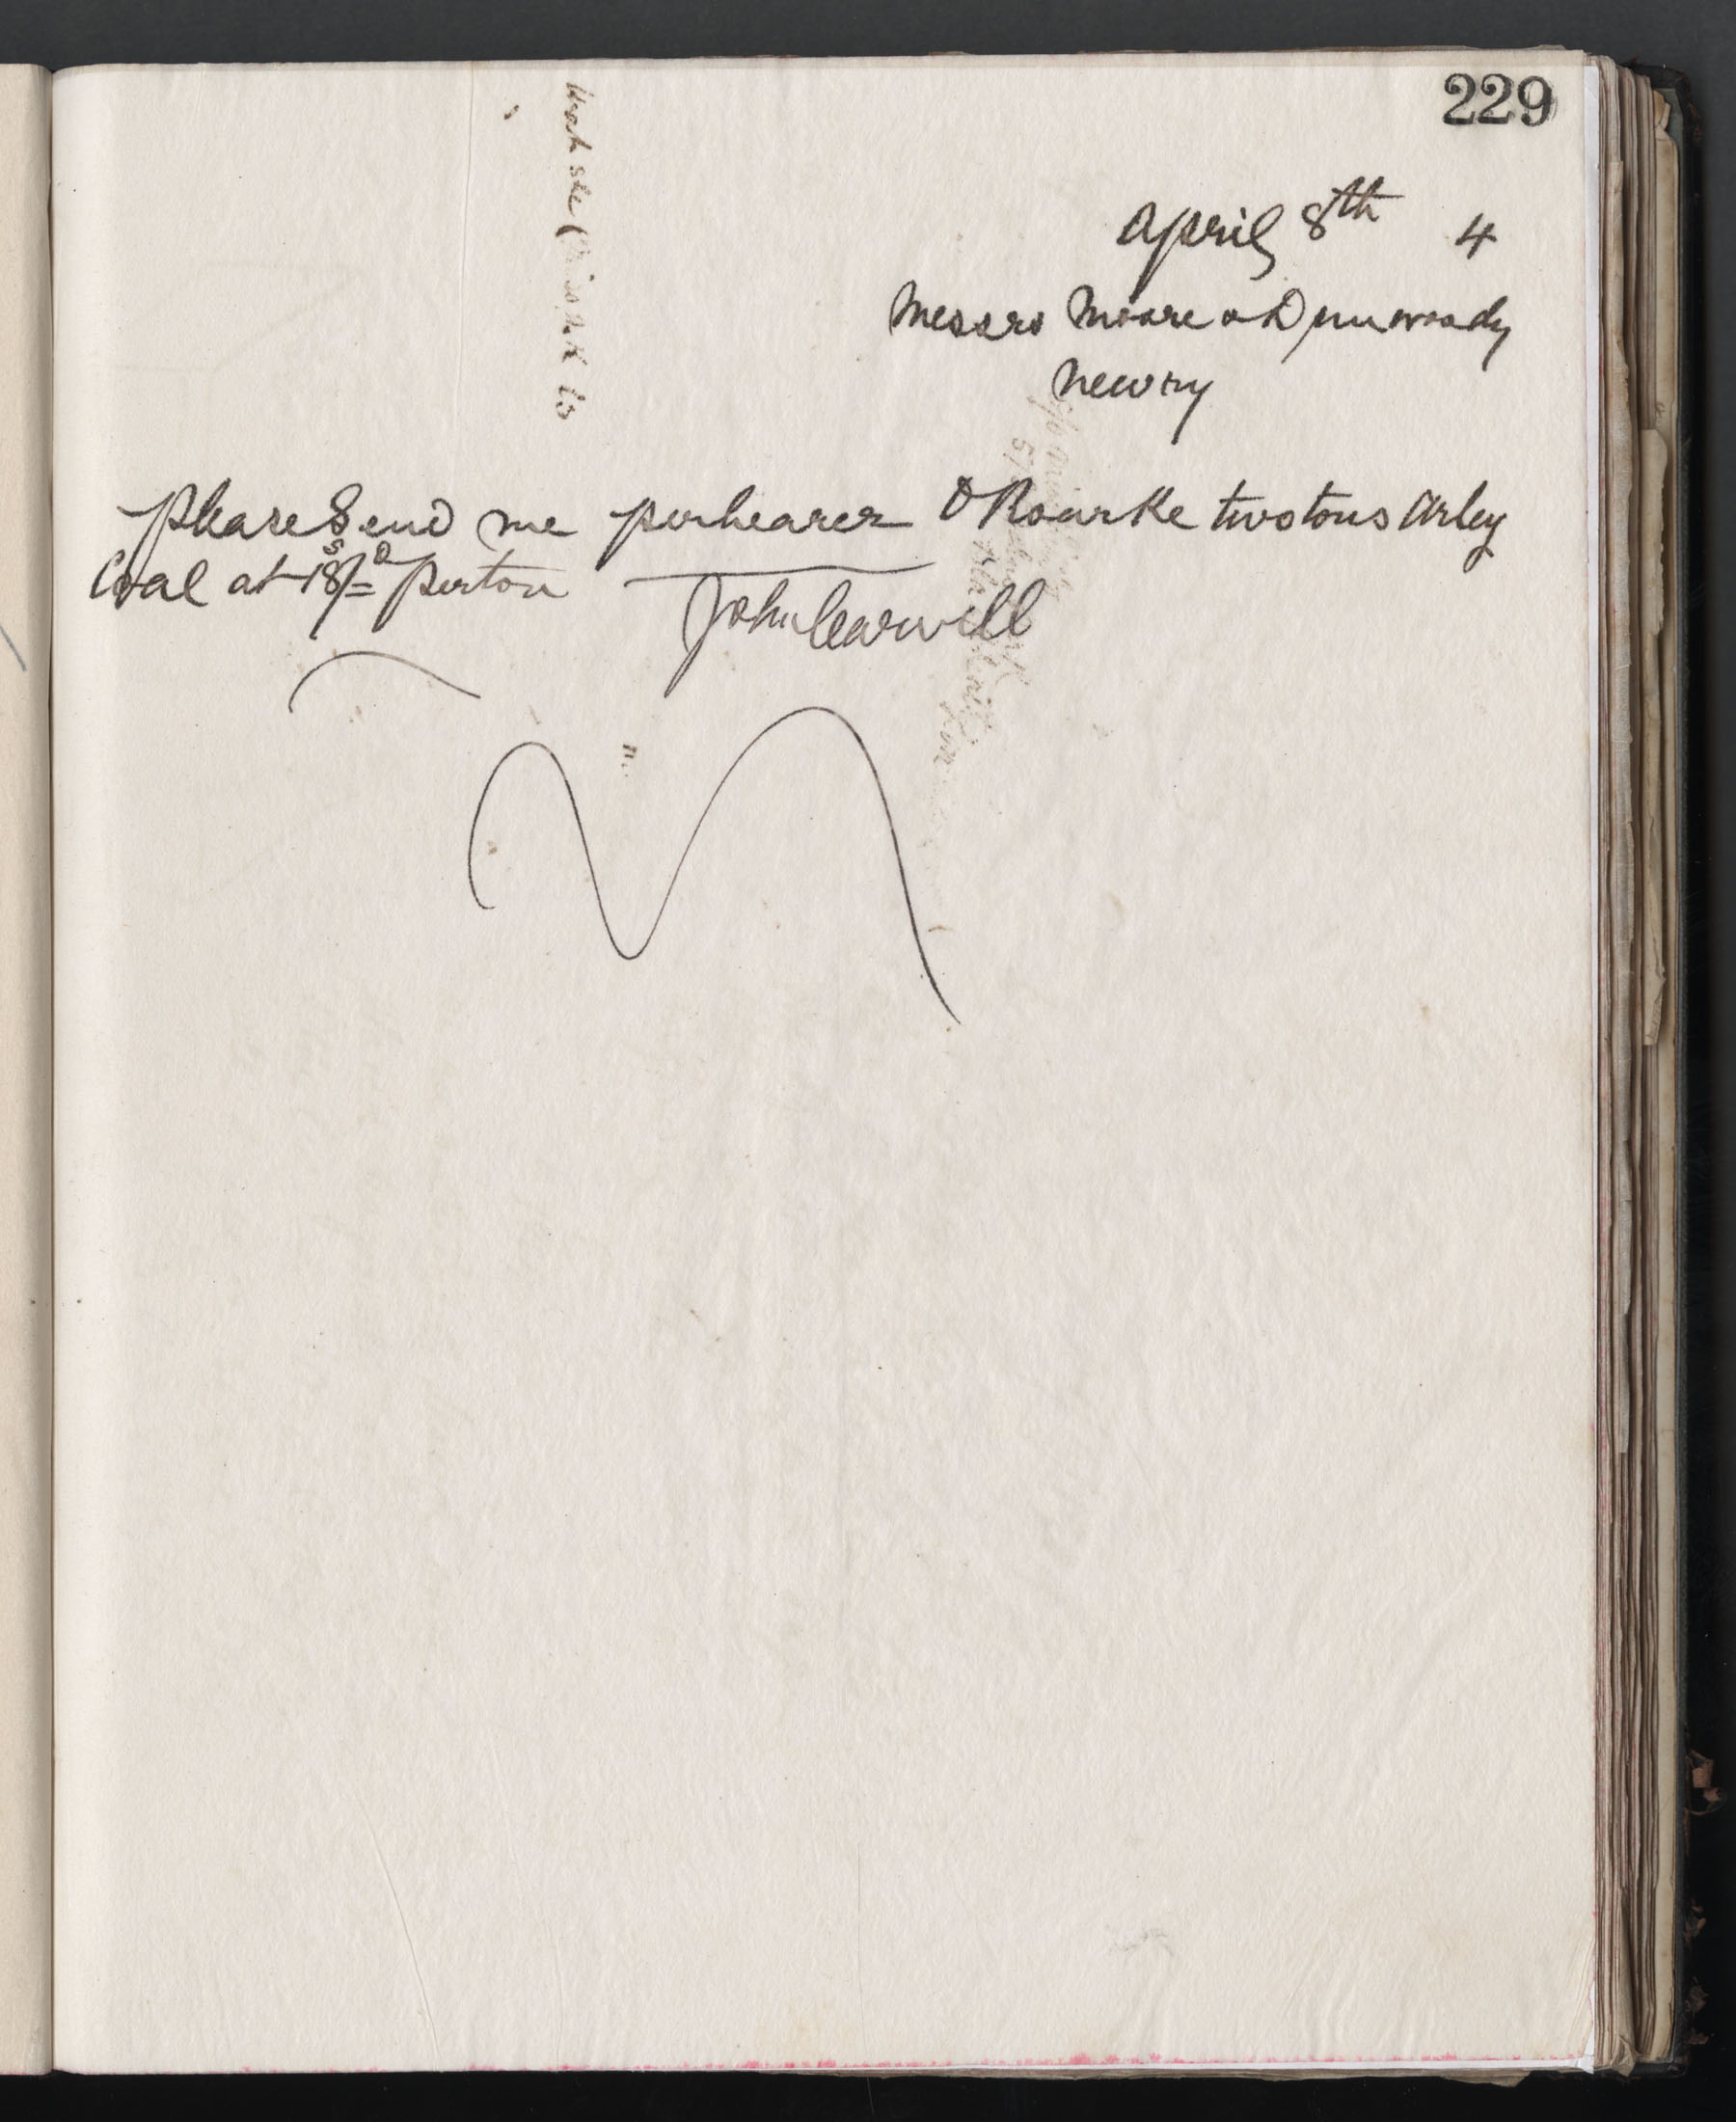 229
April 8th 4
Messrs Moore & Dunwoody
Newry
Please Send me per bearer O Rourke two tons Arley
Coal at 18s/=D per ton
John Carvill